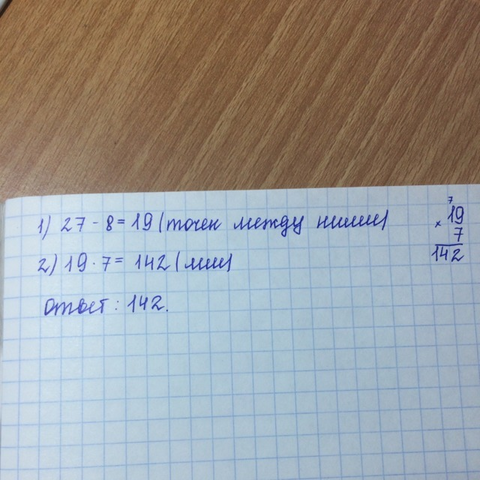 1) 27 - 8 = 19 (точек между ними)
2) 19 · 7 = 142 (мин)
Ответ: 142.
7
19
× 7
142